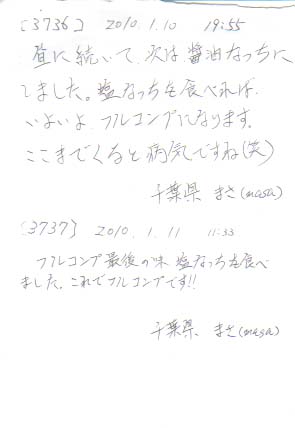 [3736] 2010.1.10 19:55
昼に続いて、次は醤油なっちに
しました。塩なっちを食べれば、
いよいよ、フルコンプになります。
ここまでくると病気ですね(笑)
千葉県 まさ(masa)
[3737] 2010.1.11 11:33
フルコンプ最後の味 塩なっちを食べ
ました。これでフルコンプです!!
千葉県 まさ(masa)